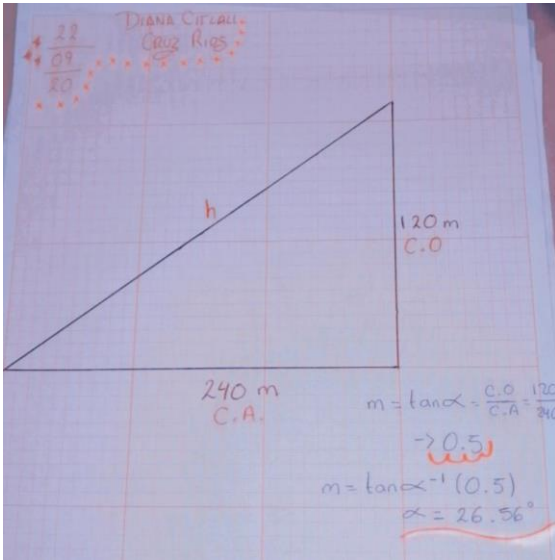 22
09
20
DIANA CITLALI
CRUZ RIOS
h
120 m
C.O
240 m
C.A.
m = tan α = C.O/C.A = 120/240
-> 0.5
m = tan α⁻¹ (0.5)
α = 26.56°